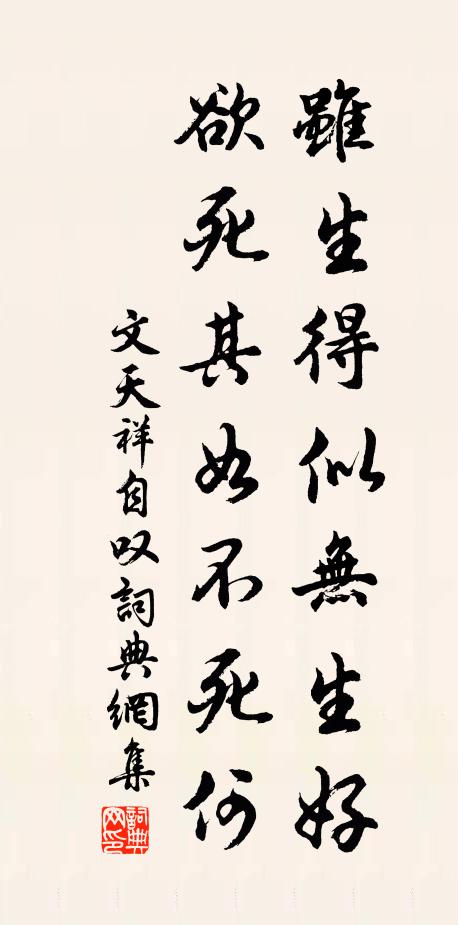 雖生得似無生好
欲死其如不死何
文天祥自叹詞典網集
詞典网印